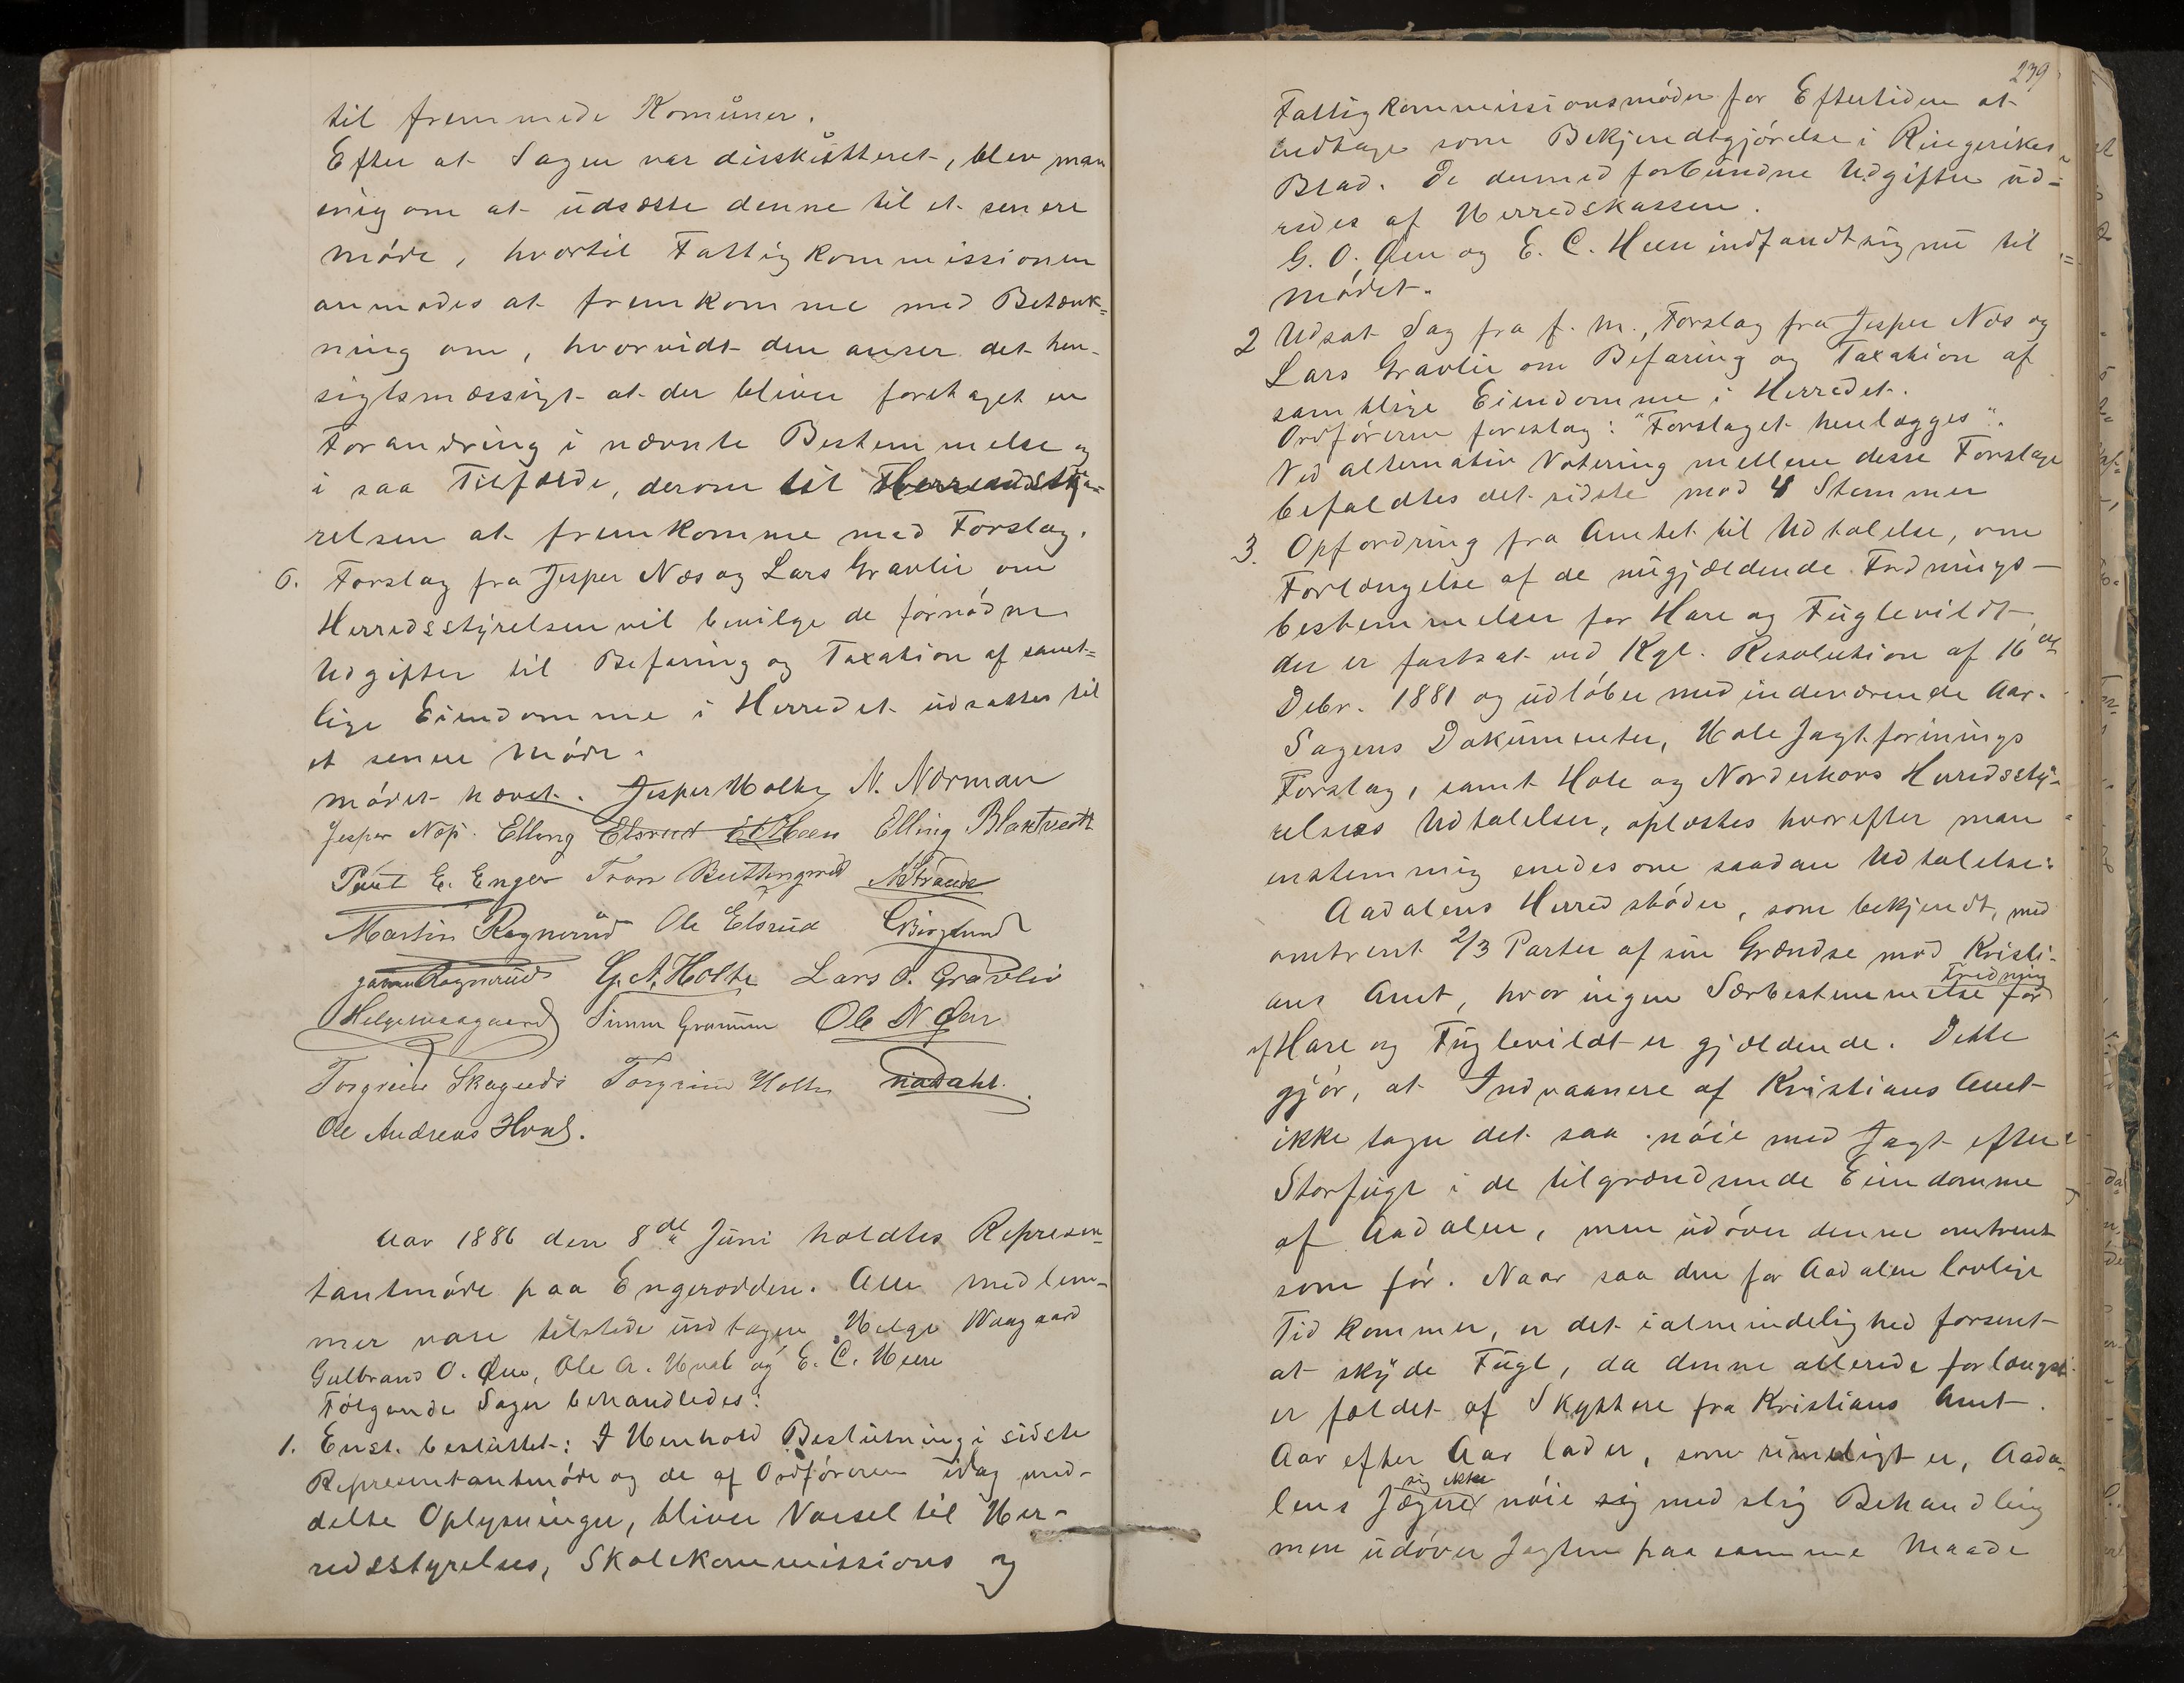 til fremmede Komuner.
Efter at Sagen var disskutteret, blev man
enig om at udsætte denne til et senere
møde, hvortil Fattigkommissionen
anmodes at fremkomme med Betænk=
ning om, hvorvidt den anser det hen-
sigtsmæssigt at der bliver foretaget en
Forandring i nævnte Bestemmelse og
i saa Tilfælde, derom til Herredssty-
relsen at fremkomme med Forslag.
6. Forslag fra Jesper Næs og Lars Gravlie om
Herredsstyrelsen vil bevilge de fornødne
Udgifter til Befaring og Taxation af samt=
lige Eiendomme i Herredet udsattes til
et senere Møde.
Mødet hævet. Jesper Holte N. Norman
Jesper Næs. Elling Elsrud E C Heen Elling Blaktvedt
Paul E. Enger Tron Buttingsrud Strande
Martin Ragnerud Ole Elsrud Berglund
Ragnerud G. A. Holte Lars O. Gravlie
Helge Waagaard Simen Gramum Ole N Øen
Torgrim Skagnæs Torgrim Holte Nadahl.
Ole Andreas Hval.
Aar 1886 den 8de Juni holdtes Represen-
tantmøde paa Engerodden. Alle Medlem-
mer vare tilstede undtagen Helge Waagaard
Gulbrand O. Øen, Ole A. Hval og E. C. Heen
Følgende Sager behandledes:
1. Enst. besluttet: I Henhold Beslutning i sidste
Representantmøde og de af Ordføreren idag med-
delte Oplysninger, bliver Varsel til Her-
redsstyrelses, Skolekommissions og
239
Fattigkommissionsmøder for Eftertiden at
indtage som Bekjendtgjørelse i Ringerikes
Blad. De dermed forbundne Udgifter ud=
redes af Herredskassen.
G. O. Øen og E. C. Heen indfandt sig nu til
Mødet.
2 Udsat Sag fra f. M., Forslag fra Jesper Næs og
Lars Gravlie om Befaring og Taxation af
samtlige Eiendomme i Herredet.
Ordføreren foreslog: "Forslaget henlægges".
Ved alternativ Votering mellem disse Forslage
befaldtes det sidste mod 4 Stemmer
3. Opfordring fra Amtet til Udtalelse, om
Forlængelse af de nugjældende Frednings-
bestemmelser for Hare og Fuglevildt,
der er fastsat ved Kgl. Resolution af 16de
Debr. 1881 og udløber med indeværende Aar.
Sagens Dokumenter, Hole Jagtforenings
Forslag, samt Hole og Norderhovs Herredssty-
relses Udtalelser, oplæstes hvorefter man
enstemmig enedes om saadan Udtalelse:
Aadalens Herred støder, som bekjendt, med
omtrent 2/3 Parter af sin Grændse mod Kristi-
ans Amt, hvor ingen Særbestemmelse for
Fredning
af Hare og Fuglevildt er gjældende. Dette
gjør, at Indvaanere af Kristians Amt
ikke tager det saa nøie med Jagt efter
Storfugl i de tilgrændsende Eiendomme
af Aadalen, men udøver denne omtrent
som før. Naar saa den for Aadalen lovlige
Tid kommer, er det i almindelighed forsent
at skyde Fugl, da denne allerede forlængst
er fældet af Skyttere fra Kristians Amt.
Aar efter Aar lader, som rimeligt er, Aada-
sig ikke
lens Jægere nøie sig med slig Behandling
men udøver Jagten paa samme Maade